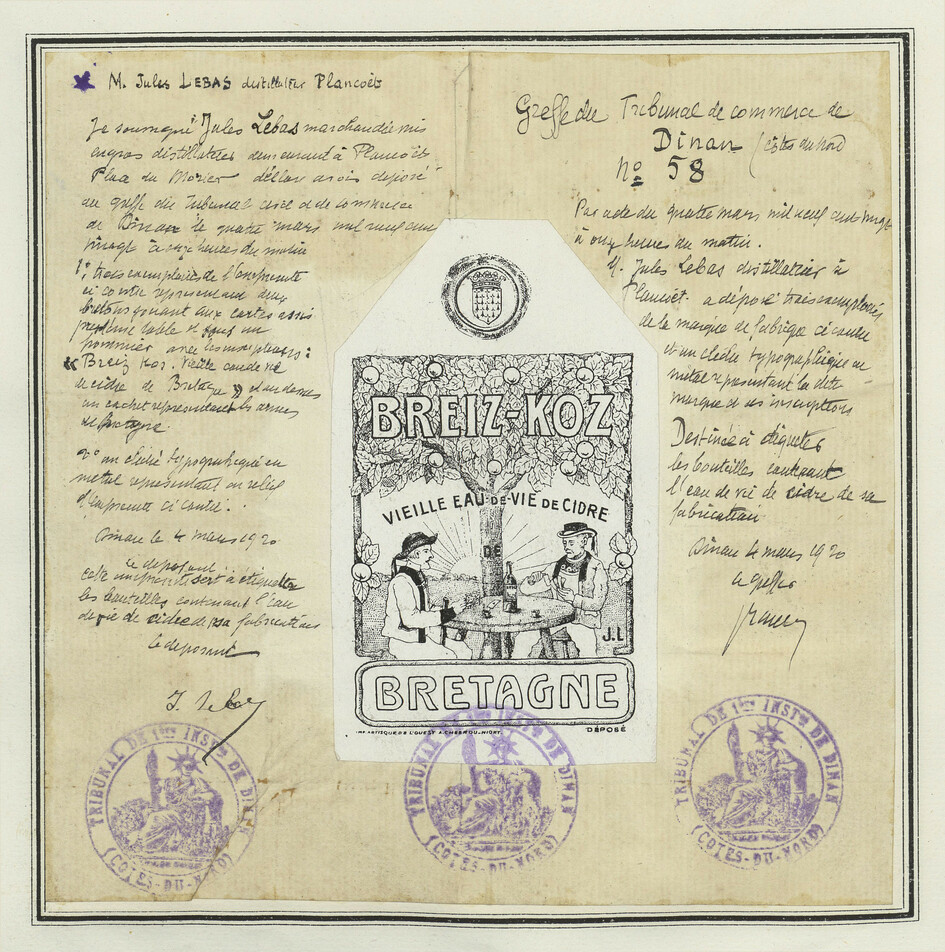 M. Jules LEBAS distillateur Plancoët
Je soussigné Jules Lebas marchand en
en gros distillateur demeurant à Plancoët
Place du déclare avoir déposé
au greffe du Tribunal civil et de commerce
de Dinan le quatre mars mil neuf cent
vingt à onze heures du matin
1° trois exemplaires de l'empreinte
ci contre représentant deux
bretons jouant aux cartes assis
une table et sous un
pommier avec les inscriptions :
« Breiz Koz. Vieille eau de vie
de cidre de Bretagne » et au dessus
un cachet représentant les armes
de Bretagne.
2° un cliché typographique en
métal représentant en relief
l'empreinte ci contre.
Dinan le 4 mars 1920
le déposant
cette empreinte sert à étiqueter
les bouteilles contenant l'eau
de vie de cidre de sa fabrication
le déposant
J. Lebas
Greffe du Tribunal de commerce de
Dinan (Côtes du Nord)
N° 58
Par acte du quatre mars mil neuf cent vingt
à onze heures du matin.
M. Jules Lebas distillateur à
Plancoët. a déposé trois exemplaires
de la marque de fabrique ci contre
et un cliché typographique en
métal représentant la dite
marque et ses inscriptions
Destinée à étiqueter
les bouteilles contenant
l'eau de vie de cidre de sa
fabrication
Dinan 4 mars 1920
le greffier
BREIZ-KOZ
VIEILLE EAU-DE-VIE DE CIDRE
DE
J.L
BRETAGNE
IMP. ARTISTIQUE DE L'OUEST A. CHEBROU. NIORT.
DÉPOSÉ
TRIBUNAL DE 1ère INSTce DE DINAN
(COTES-DU-NORD)
TRIBUNAL DE 1ère INSTce DE DINAN
(COTES-DU-NORD)
TRIBUNAL DE 1ère INSTce DE DINAN
(COTES-DU-NORD)